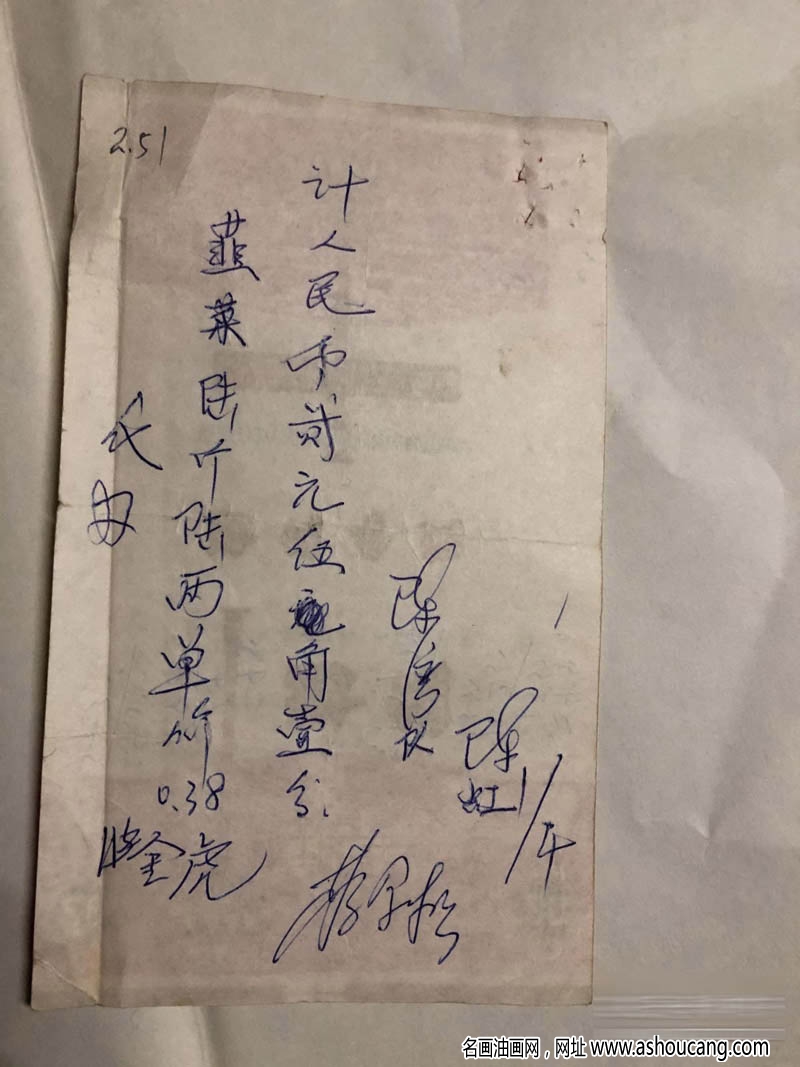 2.51
陈
陈
计人民币贰元伍角壹分
韭菜陆斤陆两单价0.38
金虎
名画油画网，网址 www.ashoucang.com